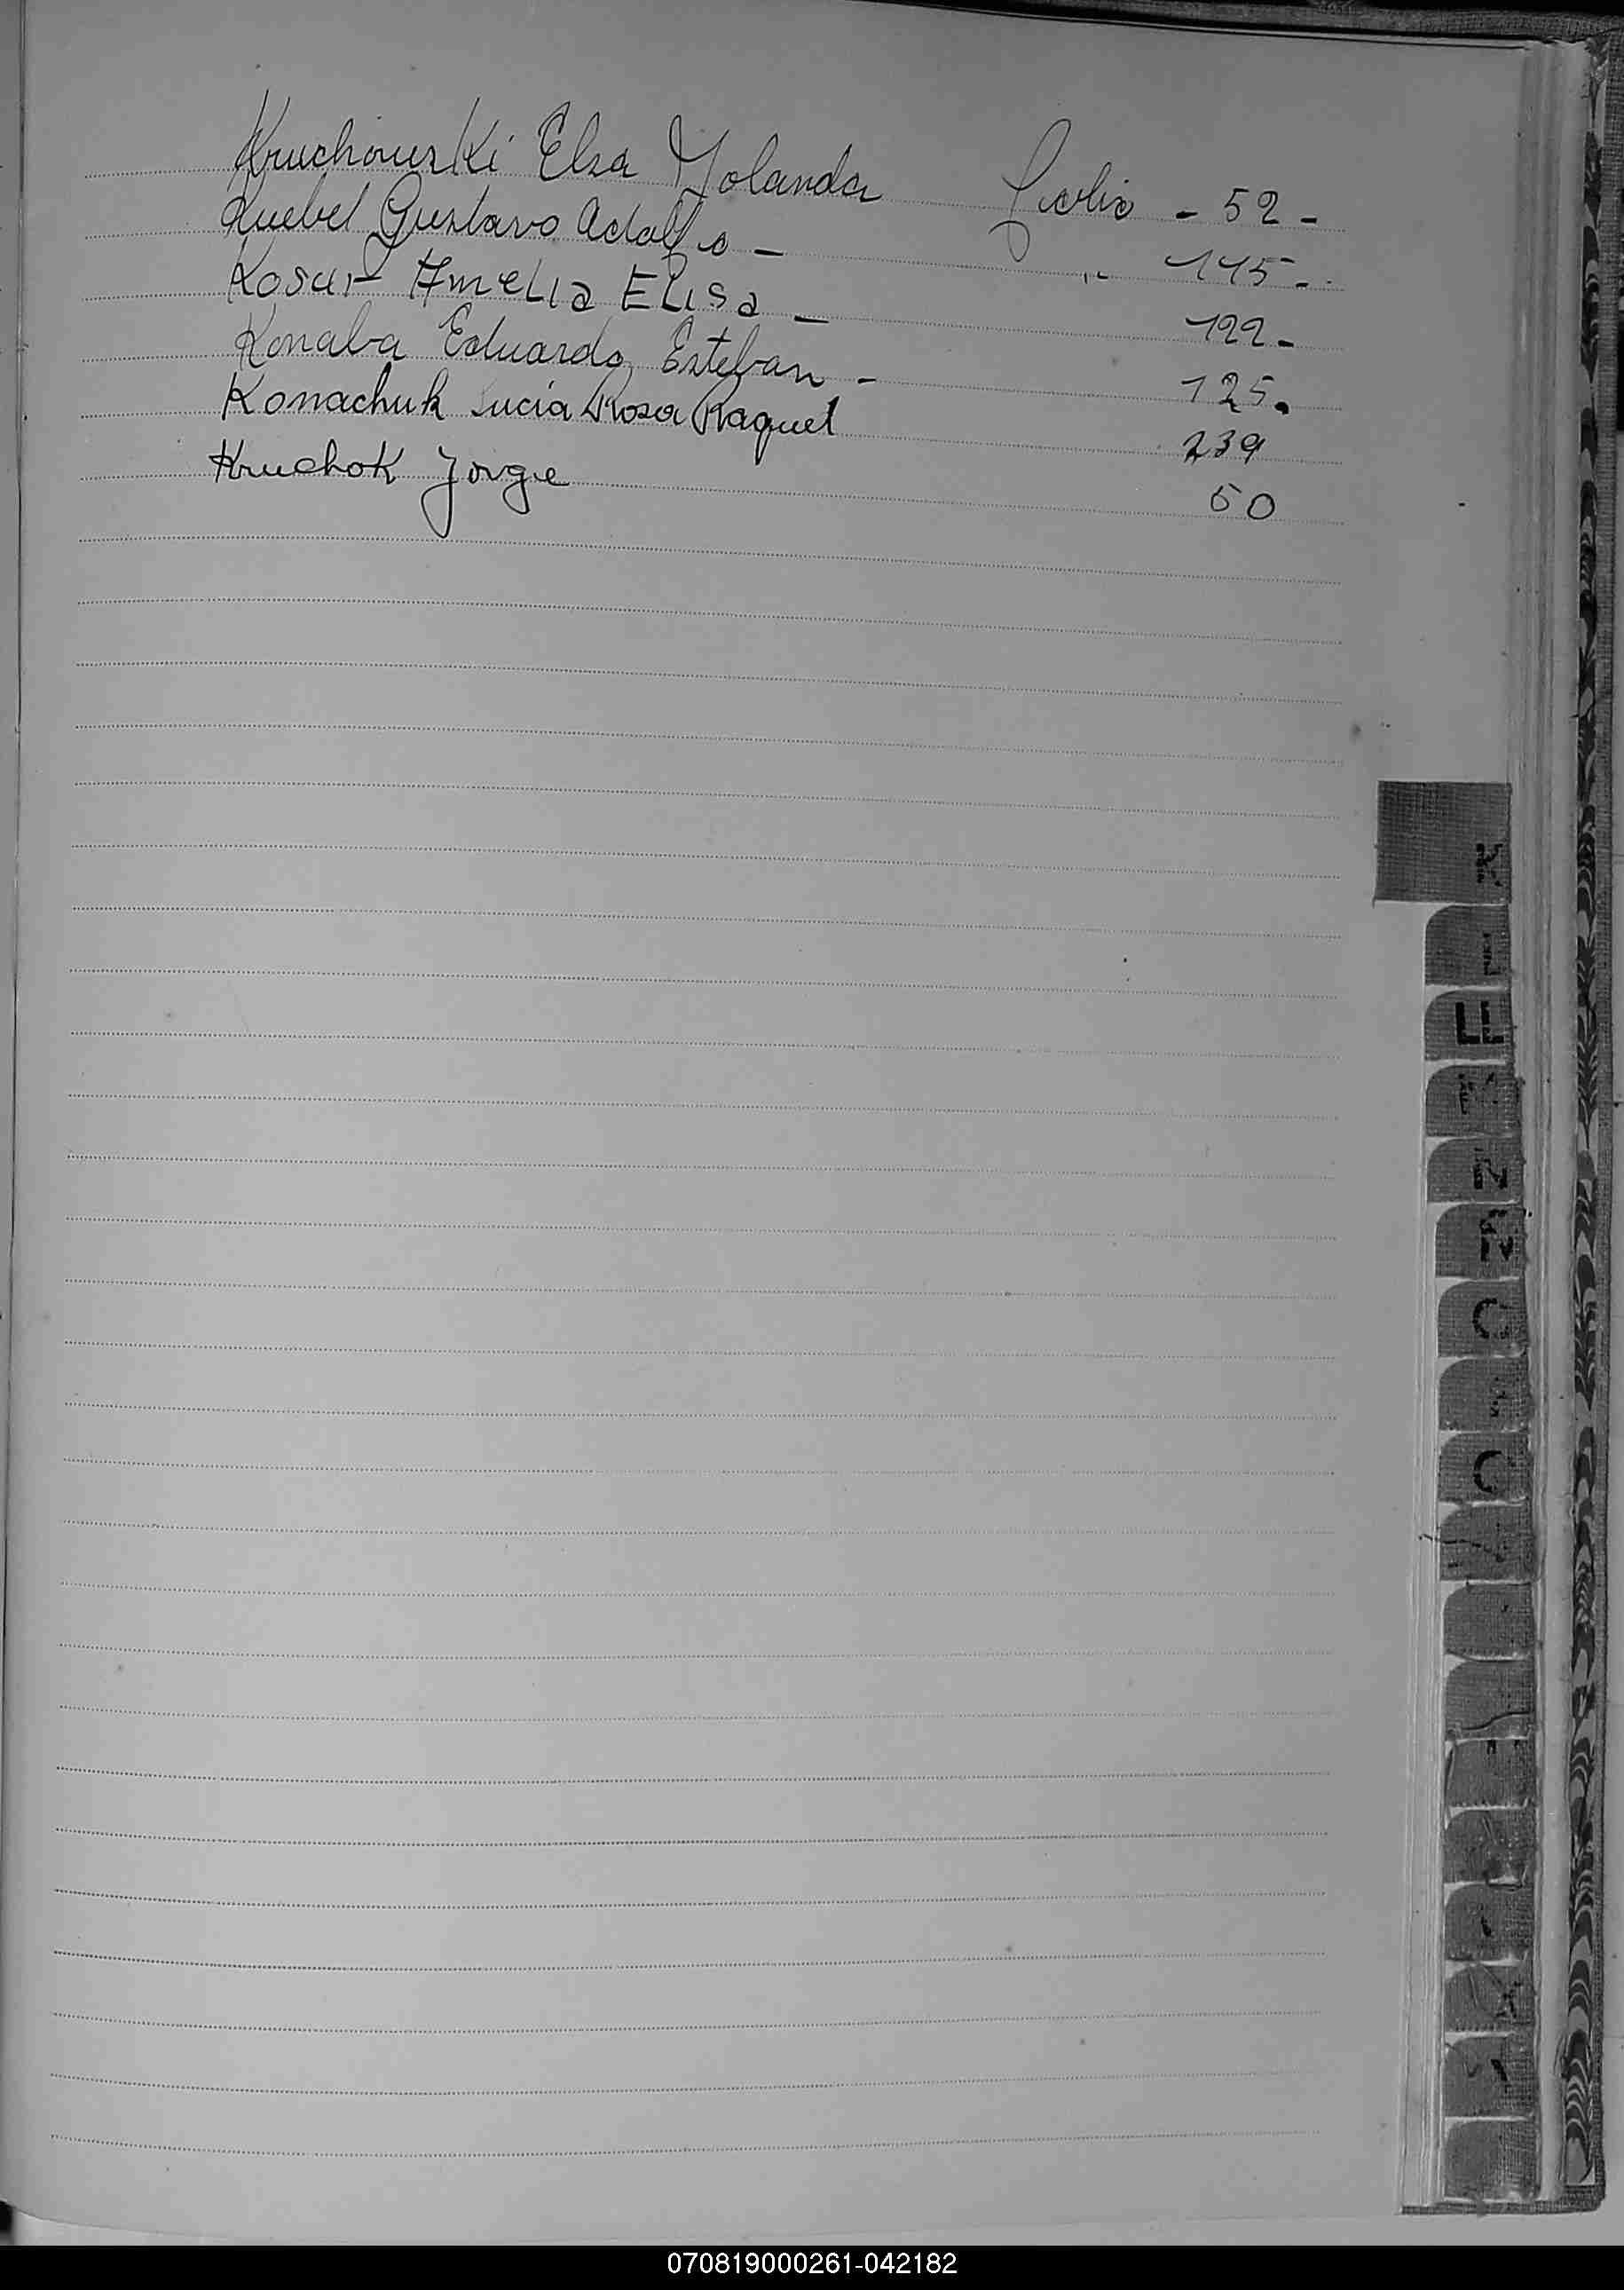 Kruchowski Elsa Yolanda Folio - 52 -
Kuebel Gustavo Adolfo - " 145 -
Kosur Amelia Elisa - 122 -
Konaba Eduardo Esteban - 125.
Konachuk Lucia Rosa Raquel 239
Kruchok Jorge 50
K
L
LL
M
N
Ñ
O
Q
070819000261-042182